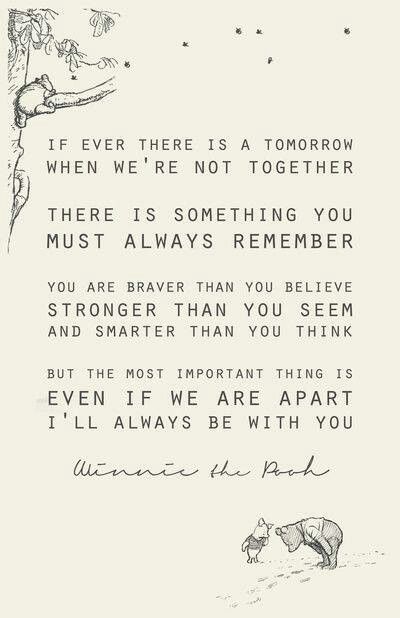 IF EVER THERE IS A TOMORROW
WHEN WE'RE NOT TOGETHER
THERE IS SOMETHING YOU
MUST ALWAYS REMEMBER
YOU ARE BRAVER THAN YOU BELIEVE
STRONGER THAN YOU SEEM
AND SMARTER THAN YOU THINK
BUT THE MOST IMPORTANT THING IS
EVEN IF WE ARE APART
I'LL ALWAYS BE WITH YOU
Winnie the Pooh